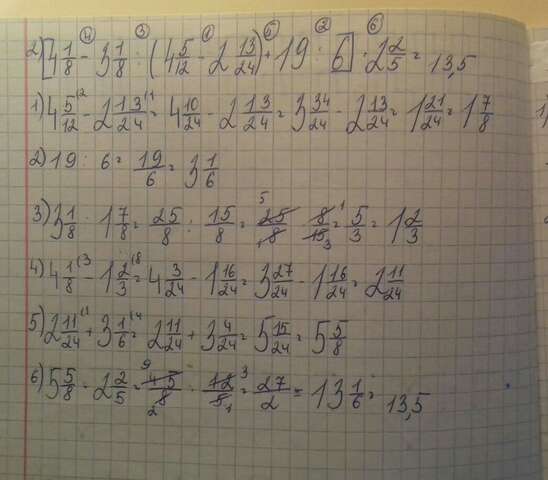 ④ ③ ① ⑤ ② ⑥
2) [4 1/8 - 3 1/8 : (4 5/12 - 2 13/24) + 19 : 6] · 2 2/5 = 13,5
1) 4 5/12 (2 - 2 13/24 (1 = 4 10/24 - 2 13/24 = 3 34/24 - 2 13/24 = 1 21/24 = 1 7/8
2) 19 : 6 = 19/6 = 3 1/6
3) 3 1/8 : 1 7/8 = 25/8 : 15/8 = 25/8 · 8/15 = 5/3 = 1 2/3
4) 4 1/8 (3 - 1 2/3 (8 = 4 3/24 - 1 16/24 = 3 27/24 - 1 16/24 = 2 11/24
5) 2 11/24 (1 + 3 1/6 (4 = 2 11/24 + 3 4/24 = 5 15/24 = 5 5/8
6) 5 5/8 · 2 2/5 = 45/8 · 12/5 = 27/2 = 13 1/6 = 13,5